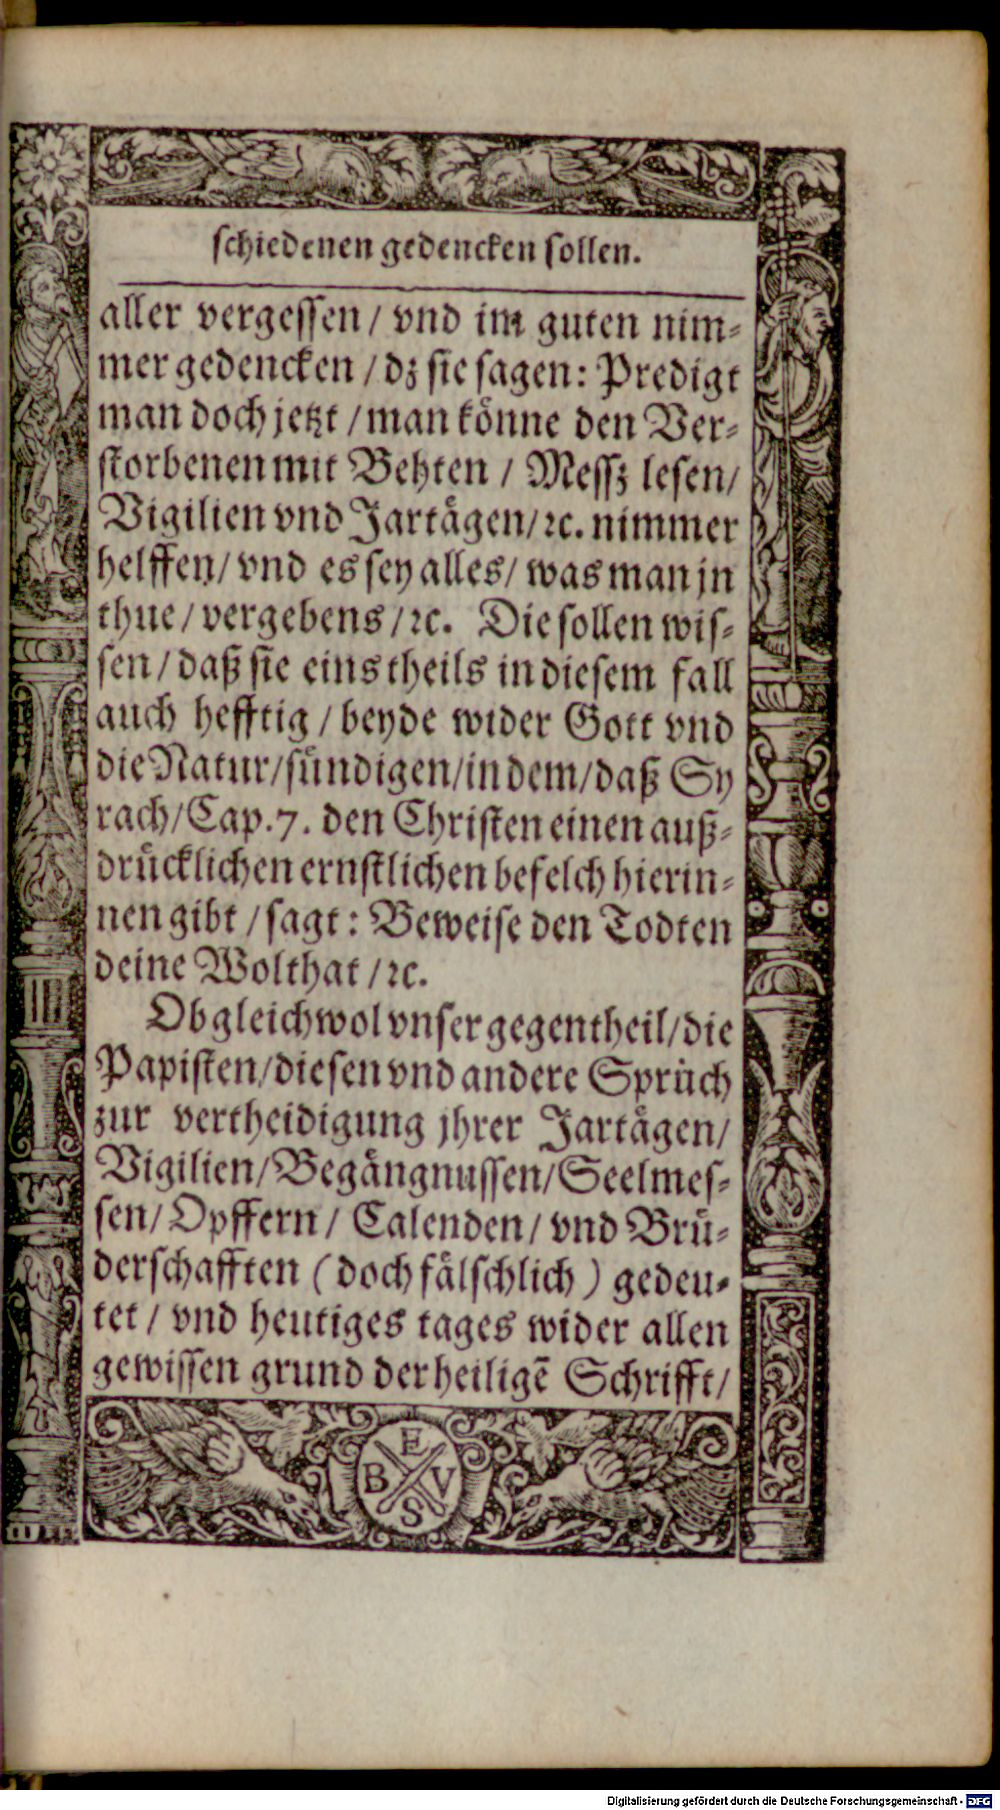 schiedenen gedencken sollen.
aller vergessen / vnd im guten nim⸗
mer gedencken / dz sie sagen: Predigt
man doch jetzt / man könne den Ver⸗
storbenen mit Behten / Messz lesen/
Vigilien vnd Jartägen/ ꝛc. nimmer
helffen/ vnd es sey alles/ was man jn
thue / vergebens / ꝛc. Die sollen wis⸗
sen / daß sie eins theils in diesem fall
auch hefftig / beyde wider Gott vnd
die Natur/sündigen/in dem/daß Sy
rach/Cap. 7. den Christen einen auß⸗
drücklichen ernstlichen befelch hierin⸗
nen gibt / sagt: Beweise den Todten
deine Wolthat / ꝛc.
Ob gleichwol vnser gegentheil/die
Papisten/diesen vnd andere Sprüch
zur vertheidigung jhrer Jartägen/
Vigilien/Begängnussen/Seelmes⸗
sen/ Opffern / Calenden/ vnd Brü⸗
derschafften (doch fälschlich) gedeu⸗
tet / vnd heutiges tages wider allen
gewissen grund der heiligẽ Schrifft/
E
B V
S
Digitalisierung gefördert durch die Deutsche Forschungsgemeinschaft - DFG